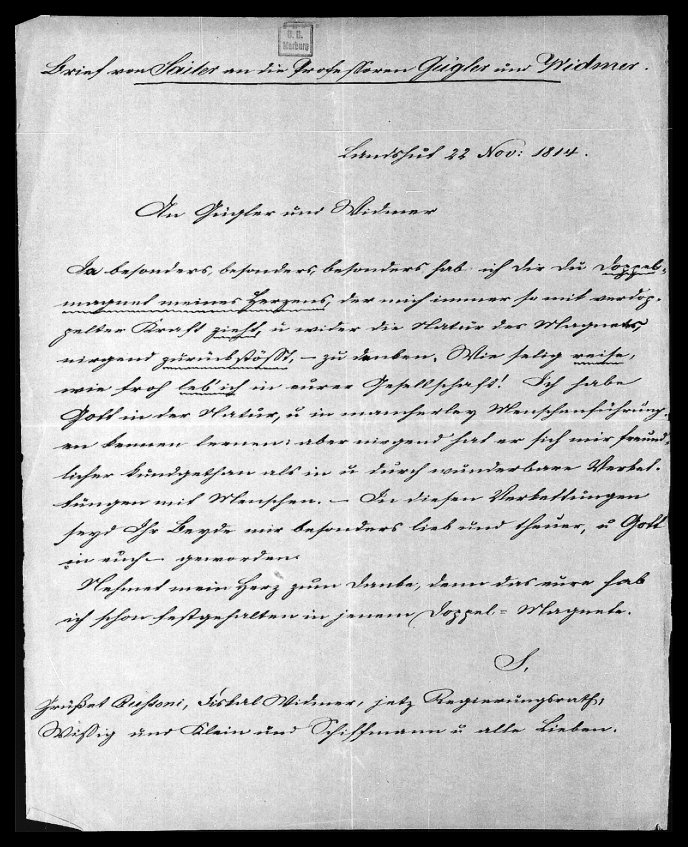 U. B.
Marburg
Brief von Sailer an die Professoren Gügler und Widmer.
Landshut 22 Nov: 1814.
An Gügler und Widmer
Ja besonders, besonders, besonders hab ich dir du Doppel-
magnet meines Herzens, der mich immer so mit verdop-
pelter Kraft zieht, u wider die Natur des Magnets,
nirgend zurückstößt, – zu danken. Wie selig reise,
wie froh leb' ich in eurer Gesellschaft! Ich habe
Gott in der Natur, u in mancherley Menschenführung-
en kennen lernen: aber nirgend hat er sich mir freund-
licher kundgethan als in u durch wunderbare Verket-
tungen mit Menschen. – In diesen Verkettungen
seyd Ihr Beyde mir besonders lieb und theuer, u Gott
in euch – geworden.
Nehmet mein Herz zum Danke, denn das eure hab
ich schon festgehalten in jenem Doppel-Magnete.
S.
Grüßet Fiskal Widmer, jetz Regierungsrath,
und Klein und Schiffmann u alle Lieben.